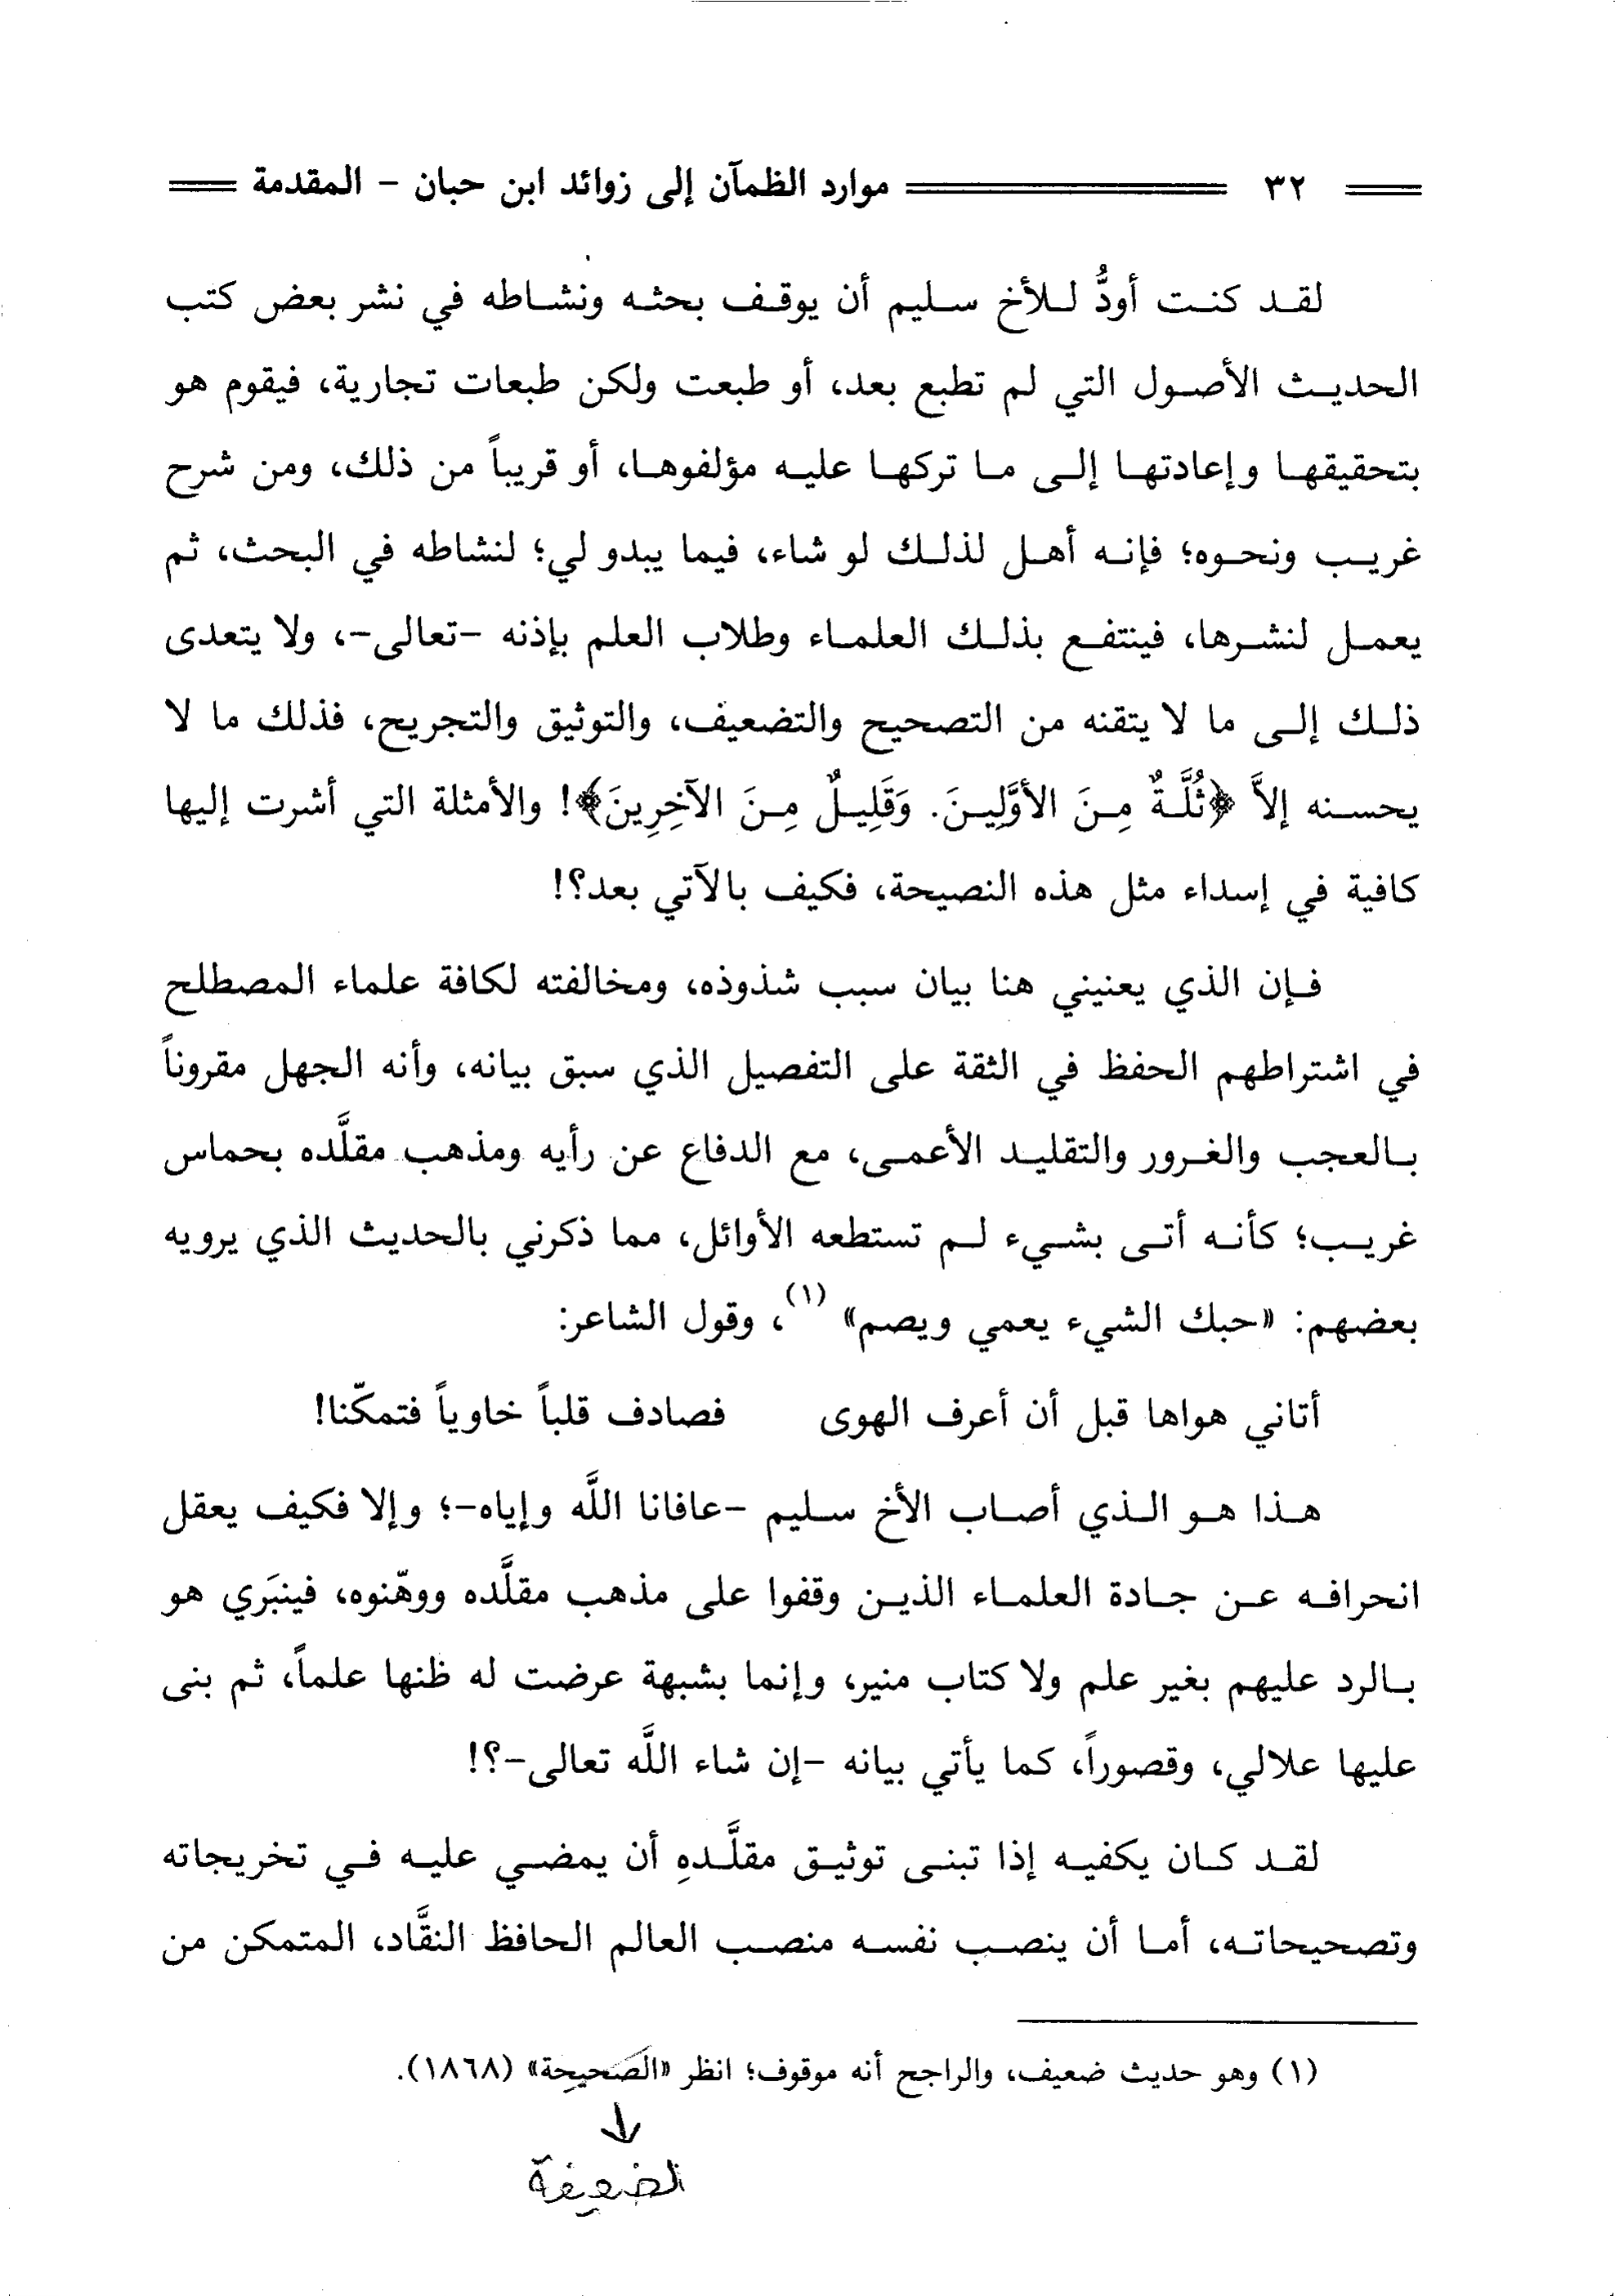 ٣٢ موارد الظمآن إلى زوائد ابن حبان - المقدمة
لقد كنت أودُّ للأخ سليم أن يوقف بحثه ونشاطه في نشر بعض كتب
الحديث الأصول التي لم تطبع بعد، أو طبعت ولكن طبعات تجارية، فيقوم هو
بتحقيقها وإعادتها إلى ما تركها عليه مؤلفوها، أو قريباً من ذلك، ومن شرح
غريب ونحوه؛ فإنه أهل لذلك لو شاء، فيما يبدو لي؛ لنشاطه في البحث، ثم
يعمل لنشرها، فينتفع بذلك العلماء وطلاب العلم بإذنه -تعالى-، ولا يتعدى
ذلك إلى ما لا يتقنه من التصحيح والتضعيف، والتوثيق والتجريح، فذلك ما لا
يحسنه إلاَّ ﴿ثُلَّةٌ مِنَ الأوَّلِينَ. وَقَلِيلٌ مِنَ الآخِرِينَ﴾! والأمثلة التي أشرت إليها
كافية في إسداء مثل هذه النصيحة، فكيف بالآتي بعد؟!
فإن الذي يعنيني هنا بيان سبب شذوذه، ومخالفته لكافة علماء المصطلح
في اشتراطهم الحفظ في الثقة على التفصيل الذي سبق بيانه، وأنه الجهل مقروناً
بالعجب والغرور والتقليد الأعمى، مع الدفاع عن رأيه ومذهب مقلَّده بحماس
غريب؛ كأنه أتى بشيء لم تستطعه الأوائل، مما ذكرني بالحديث الذي يرويه
بعضهم: «حبك الشيء يعمي ويصم» (١)، وقول الشاعر:
أتاني هواها قبل أن أعرف الهوى فصادف قلباً خاوياً فتمكّنا!
هذا هو الذي أصاب الأخ سليم -عافانا اللَّه وإياه-؛ وإلا فكيف يعقل
انحرافه عن جادة العلماء الذين وقفوا على مذهب مقلَّده ووهّنوه، فينبَري هو
بالرد عليهم بغير علم ولا كتاب منير، وإنما بشبهة عرضت له ظنها علماً، ثم بنى
عليها علالي، وقصوراً، كما يأتي بيانه -إن شاء اللَّه تعالى-؟!
لقد كان يكفيه إذا تبنى توثيق مقلَّدهِ أن يمضي عليه في تخريجاته
وتصحيحاته، أما أن ينصب نفسه منصب العالم الحافظ النقَّاد، المتمكن من
(١) وهو حديث ضعيف، والراجح أنه موقوف؛ انظر «الصَحيحة» (١٨٦٨).
الضعيفة